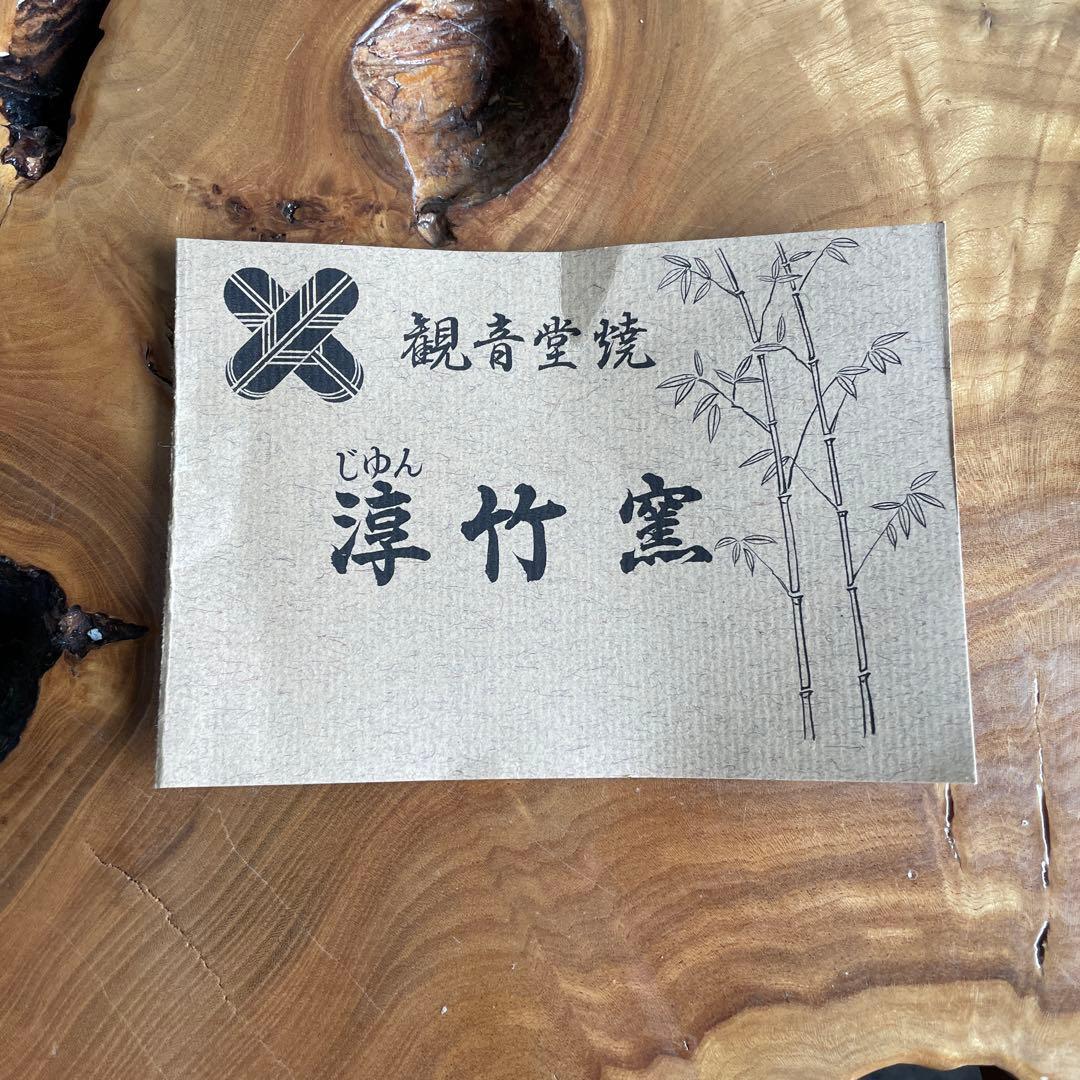 観音堂焼
じゆん
淳竹窯